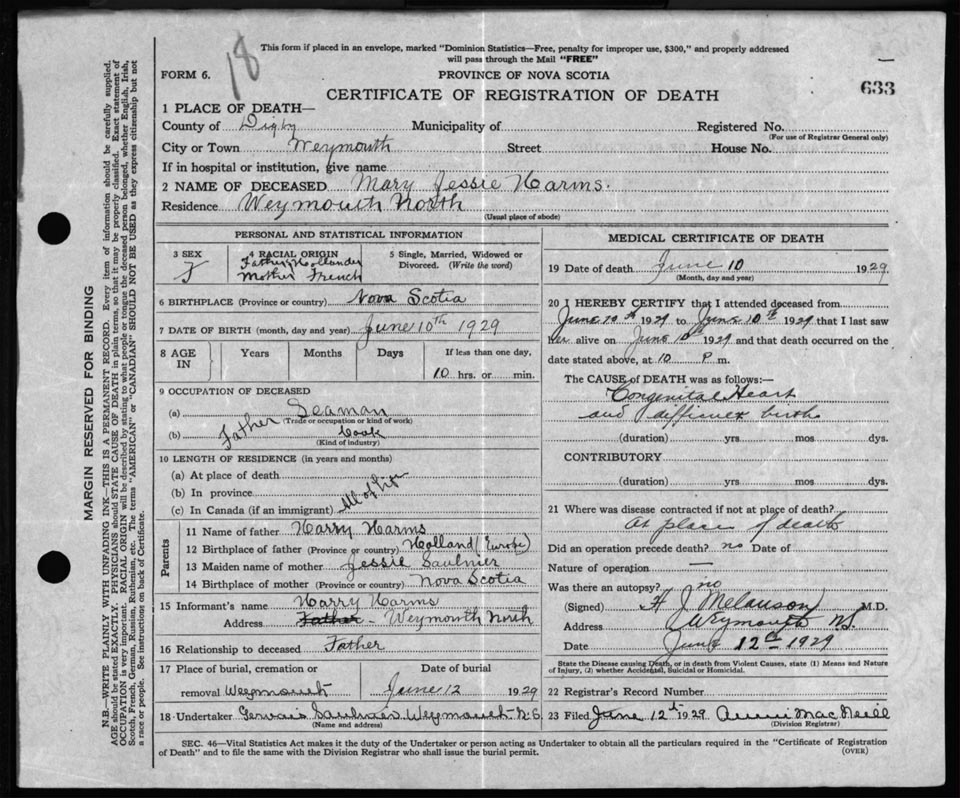 18
This form if placed in an envelope, marked "Dominion Statistics—Free, penalty for improper use, $300," and properly addressed
will pass through the Mail "FREE"
FORM 6.
PROVINCE OF NOVA SCOTIA
633
CERTIFICATE OF REGISTRATION OF DEATH
1 PLACE OF DEATH—
County of Digby Municipality of Registered No.
(For use of Registrar General only)
City or Town Weymouth Street House No.
If in hospital or institution, give name
2 NAME OF DECEASED Mary Jessie Harms.
Residence Weymouth North
(Usual place of abode)
PERSONAL AND STATISTICAL INFORMATION
3 SEX F
4 RACIAL ORIGIN
Father Hollander
Mother French
5 Single, Married, Widowed or
Divorced. (Write the word)
6 BIRTHPLACE (Province or country) Nova Scotia
7 DATE OF BIRTH (month, day and year) June 10th 1929
8 AGE IN Years Months Days If less than one day,
10 hrs. or min.
9 OCCUPATION OF DECEASED
(a) Seaman
(Trade or occupation or kind of work)
Father
(b) Cook
(Kind of industry)
10 LENGTH OF RESIDENCE (in years and months)
(a) At place of death
(b) In province
(c) In Canada (if an immigrant) All of Life
Parents
11 Name of father Harry Harms
12 Birthplace of father (Province or country) Holland (Europe)
13 Maiden name of mother Jessie Saulnier
14 Birthplace of mother (Province or country) Nova Scotia
15 Informant's name Harry Harms
Address Father - Weymouth North
16 Relationship to deceased Father
17 Place of burial, cremation or Date of burial
removal Weymouth June 12 1929
18 Undertaker Gervais Saulnier Weymouth N.S
(Name and address)
MEDICAL CERTIFICATE OF DEATH
19 Date of death June 10 1929
(Month, day and year)
20 I HEREBY CERTIFY that I attended deceased from
June 10th 1929 to June 10th 1929 that I last saw
her alive on June 10th 1929 and that death occurred on the
date stated above, at 10 P m.
The CAUSE of DEATH was as follows:—
Congenital Heart
and difficult birth
(duration) yrs. mos dys.
CONTRIBUTORY
(duration) yrs. mos. dys.
21 Where was disease contracted if not at place of death?
At place of death
Did an operation precede death? no Date of
Nature of operation —
Was there an autopsy? no
(Signed) H J Melanson M.D.
Address Weymouth NS.
Date June 12th 1929
State the Disease causing Death, or in death from Violent Causes, state (1) Means and Nature
of Injury, (2) whether Accidental, Suicidal or Homicidal.
22 Registrar's Record Number
23 Filed June 12th 1929 Annie MacNeill
(Division Registrar)
SEC. 46—Vital Statistics Act makes it the duty of the Undertaker or person acting as Undertaker to obtain all the particulars required in the "Certificate of Registration
of Death" and to file the same with the Division Registrar who shall issue the burial permit.
(OVER)
MARGIN RESERVED FOR BINDING
N.B.—WRITE PLAINLY WITH UNFADING INK—THIS IS A PERMANENT RECORD. Every item of information should be carefully supplied.
AGE should be stated EXACTLY. PHYSICIANS should STATE CAUSE OF DEATH in plain terms, so that it may be properly classified. Exact statement of
OCCUPATION is very important. RACIAL ORIGIN will be described by stating to what people or tongue the deceased person belonged, whether English, Irish,
Scotch, French, German, Russian, Ruthenian, etc. The terms "AMERICAN" or "CANADIAN" SHOULD NOT BE USED as they express citizenship but not
a race or people. See instructions on back of Certificate.